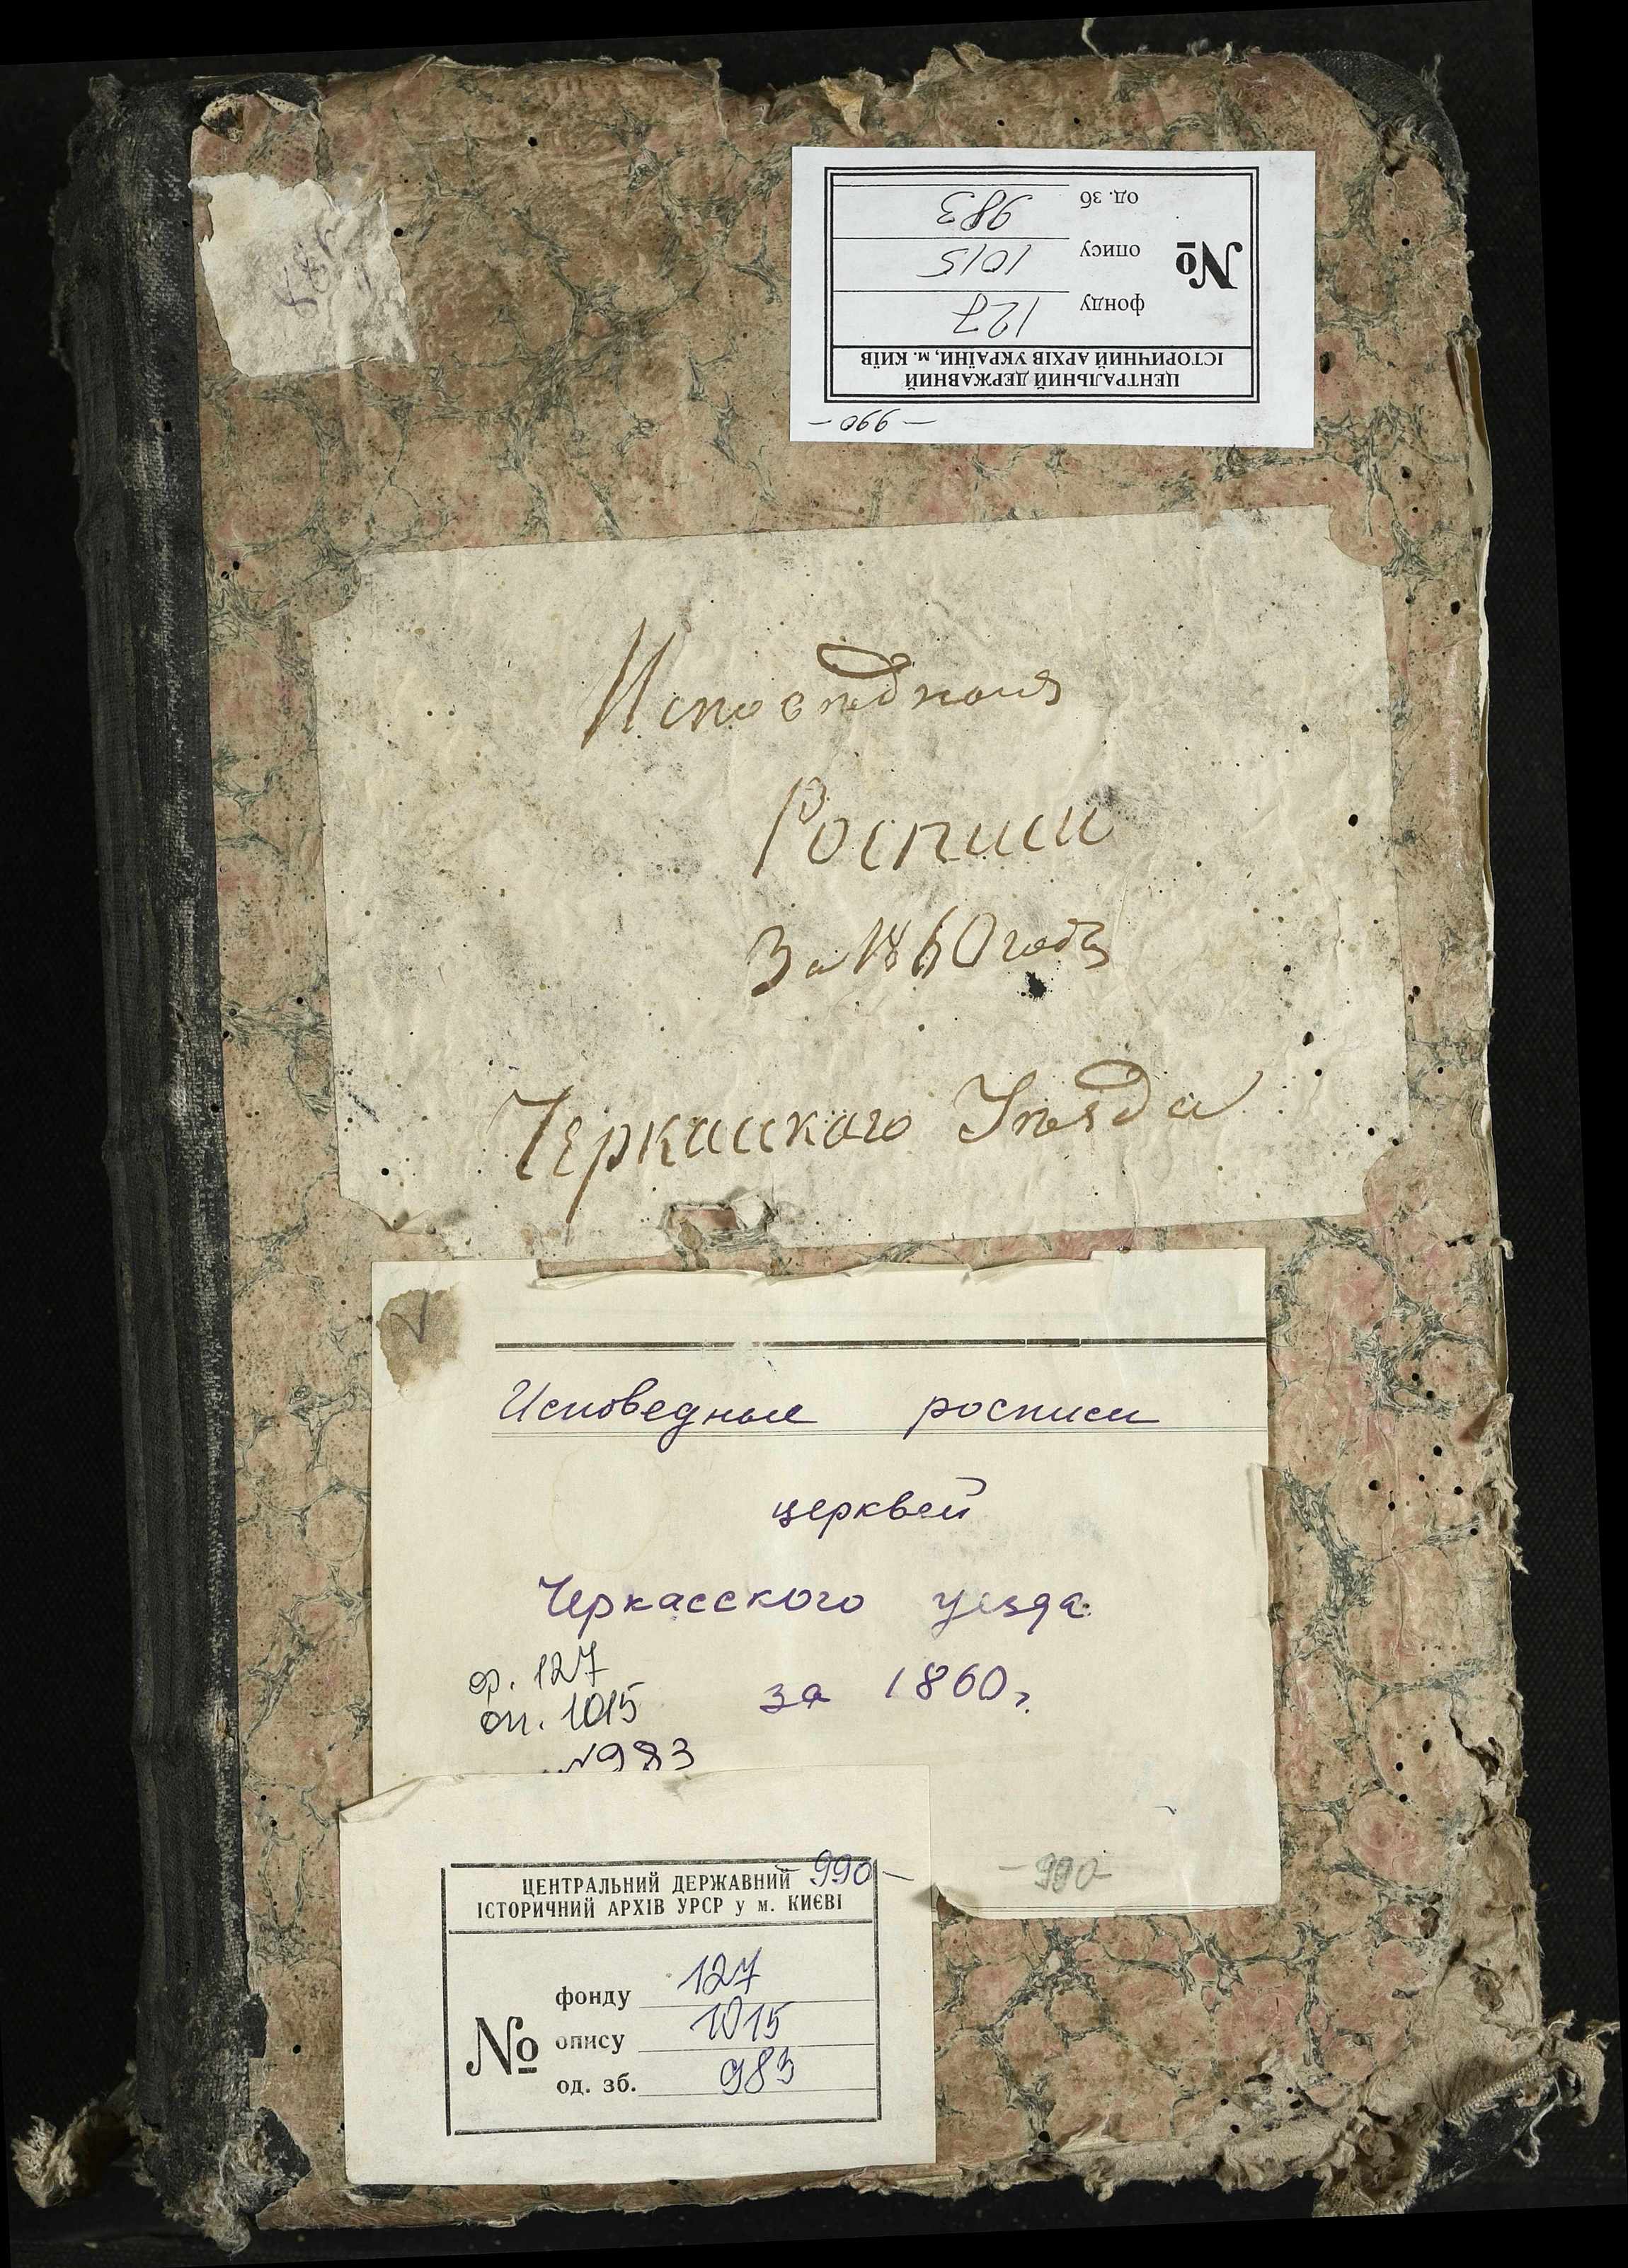 ЦЕНТРАЛЬНИЙ ДЕРЖАВНИЙ
ІСТОРИЧНИЙ АРХІВ УКРАЇНИ, м. КИЇВ
№
фонду 127
опису 1015
од. зб 983
- 990 -
Исповѣдная
Росписи
За 1860 годъ
Черкасскаго Уѣзда
Исповедные росписи
церквей
Черкасского уезда
за 1860 г.
ф. 127
оп. 1015
№983
- 990 -
- 990 -
ЦЕНТРАЛЬНИЙ ДЕРЖАВНИЙ
ІСТОРИЧНИЙ АРХІВ УРСР у м. КИЄВІ
№
фонду 127
опису 1015
од. зб. 983